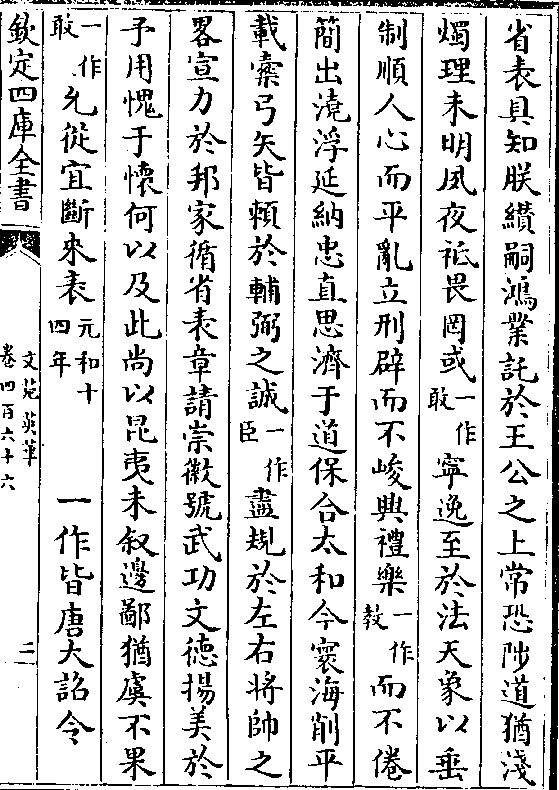 省表具知朕纉嗣鴻業託於王公之上常恐陟道猶淺
燭理未明夙夜祗畏罔或一作敢寧逸至於法天象以垂
制順人心而平亂立刑辟而不峻興禮樂一作教而不倦
簡出澆浮延納忠直思濟于道保合太和今寰海削平
載櫜弓矢皆頼於輔弼之誠一作臣盡規於左右将帥之
畧宣力於邦家循省表章請崇徽號武功文德揚美於
予用愧于懷何以及此尚以昆夷未叙邊鄙猶虞不果
一作敢允從宜斷來表元和十四年 一作皆唐大詔令
欽定四庫全書
文苑英華
卷四百六十六
二